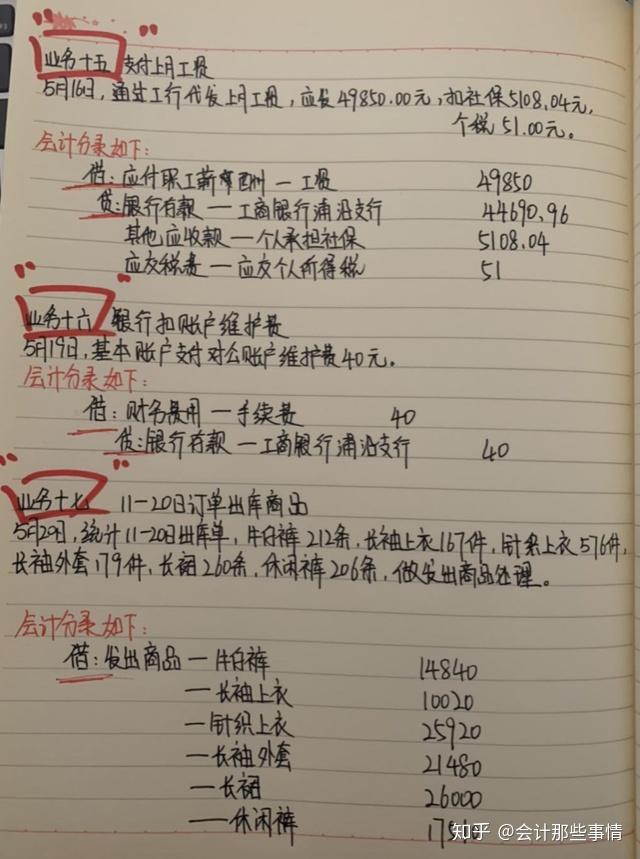 业务十五 支付上月工资
5月16日,通过工行代发上月工资,应发49850.00元,扣社保5108.04元,
个税51.00元。
会计分录如下:
借:应付职工薪酬—工资 49850
贷:银行存款—工商银行浦沿支行 44690.96
其他应收款—个人承担社保 5108.04
应交税费—应交个人所得税 51
业务十六 银行扣账户维护费
5月19日,基本账户支付对公账户维护费40元。
会计分录如下:
借:财务费用—手续费 40
贷:银行存款—工商银行浦沿支行 40
业务十七 11-20日订单出库商品
5月20日,统计11-20日出库单,牛仔裤212条,长袖上衣167件,针织上衣576件,
长袖外套179件,长裙260条,休闲裤206条,做发出商品处理。
会计分录如下:
借:发出商品—牛仔裤 14840
—长袖上衣 10020
—针织上衣 25920
—长袖外套 21480
—长裙 26000
—休闲裤
知乎 @会计那些事情